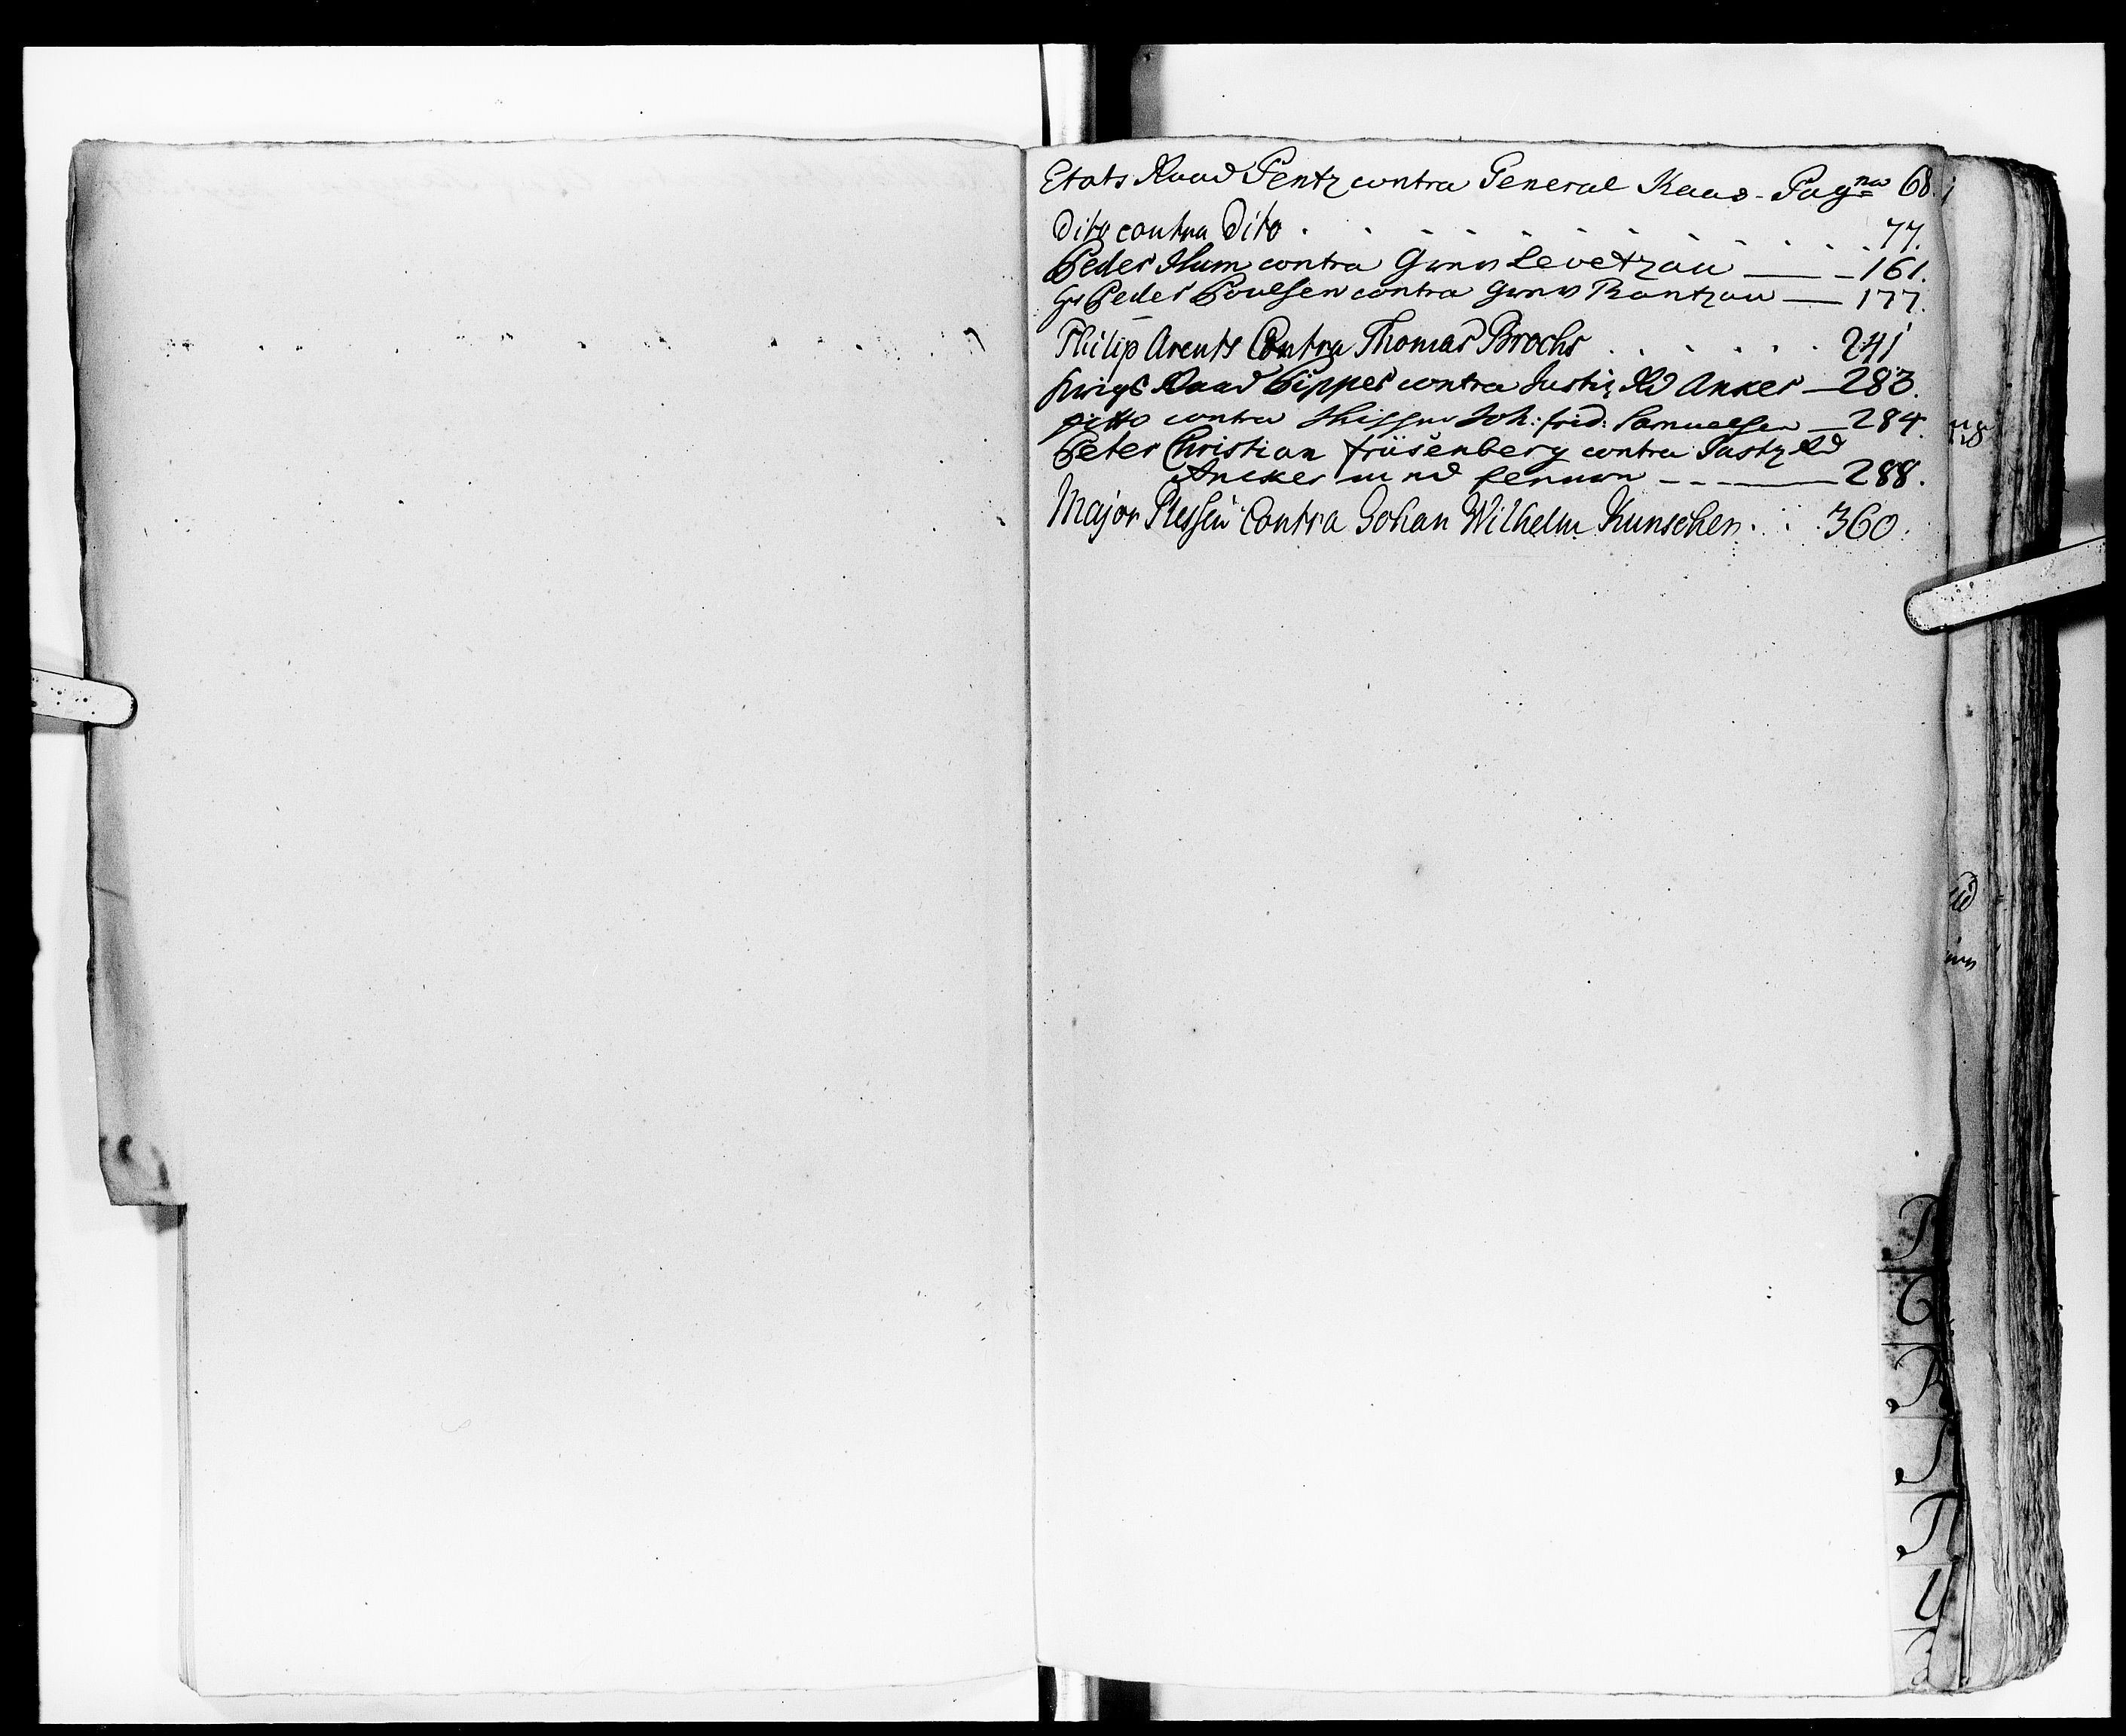 Etats Raad Pentz contra General Kaas - Pag<sup>na</sup> 68.
Dito contra Dito . . . . . . . . . . 77.
Peder Hum contra Grev Levetzau — 161.
Hr Peder Poulsen contra Grev Rantzau — 177.
Philip Arents Contra Thomas Brochs . . . . . 241
Krigs Raad Pipper contra Justiz Rd Anker — 283.
ditto contra Joh: frid: Samuelsen — 284.
Peter Christian früsenberg contra Justz Rd
Ancker — 288.
Major Plessen Contra Johan Wilhelm Kunschen . . . 360.
P
R
S
T
U